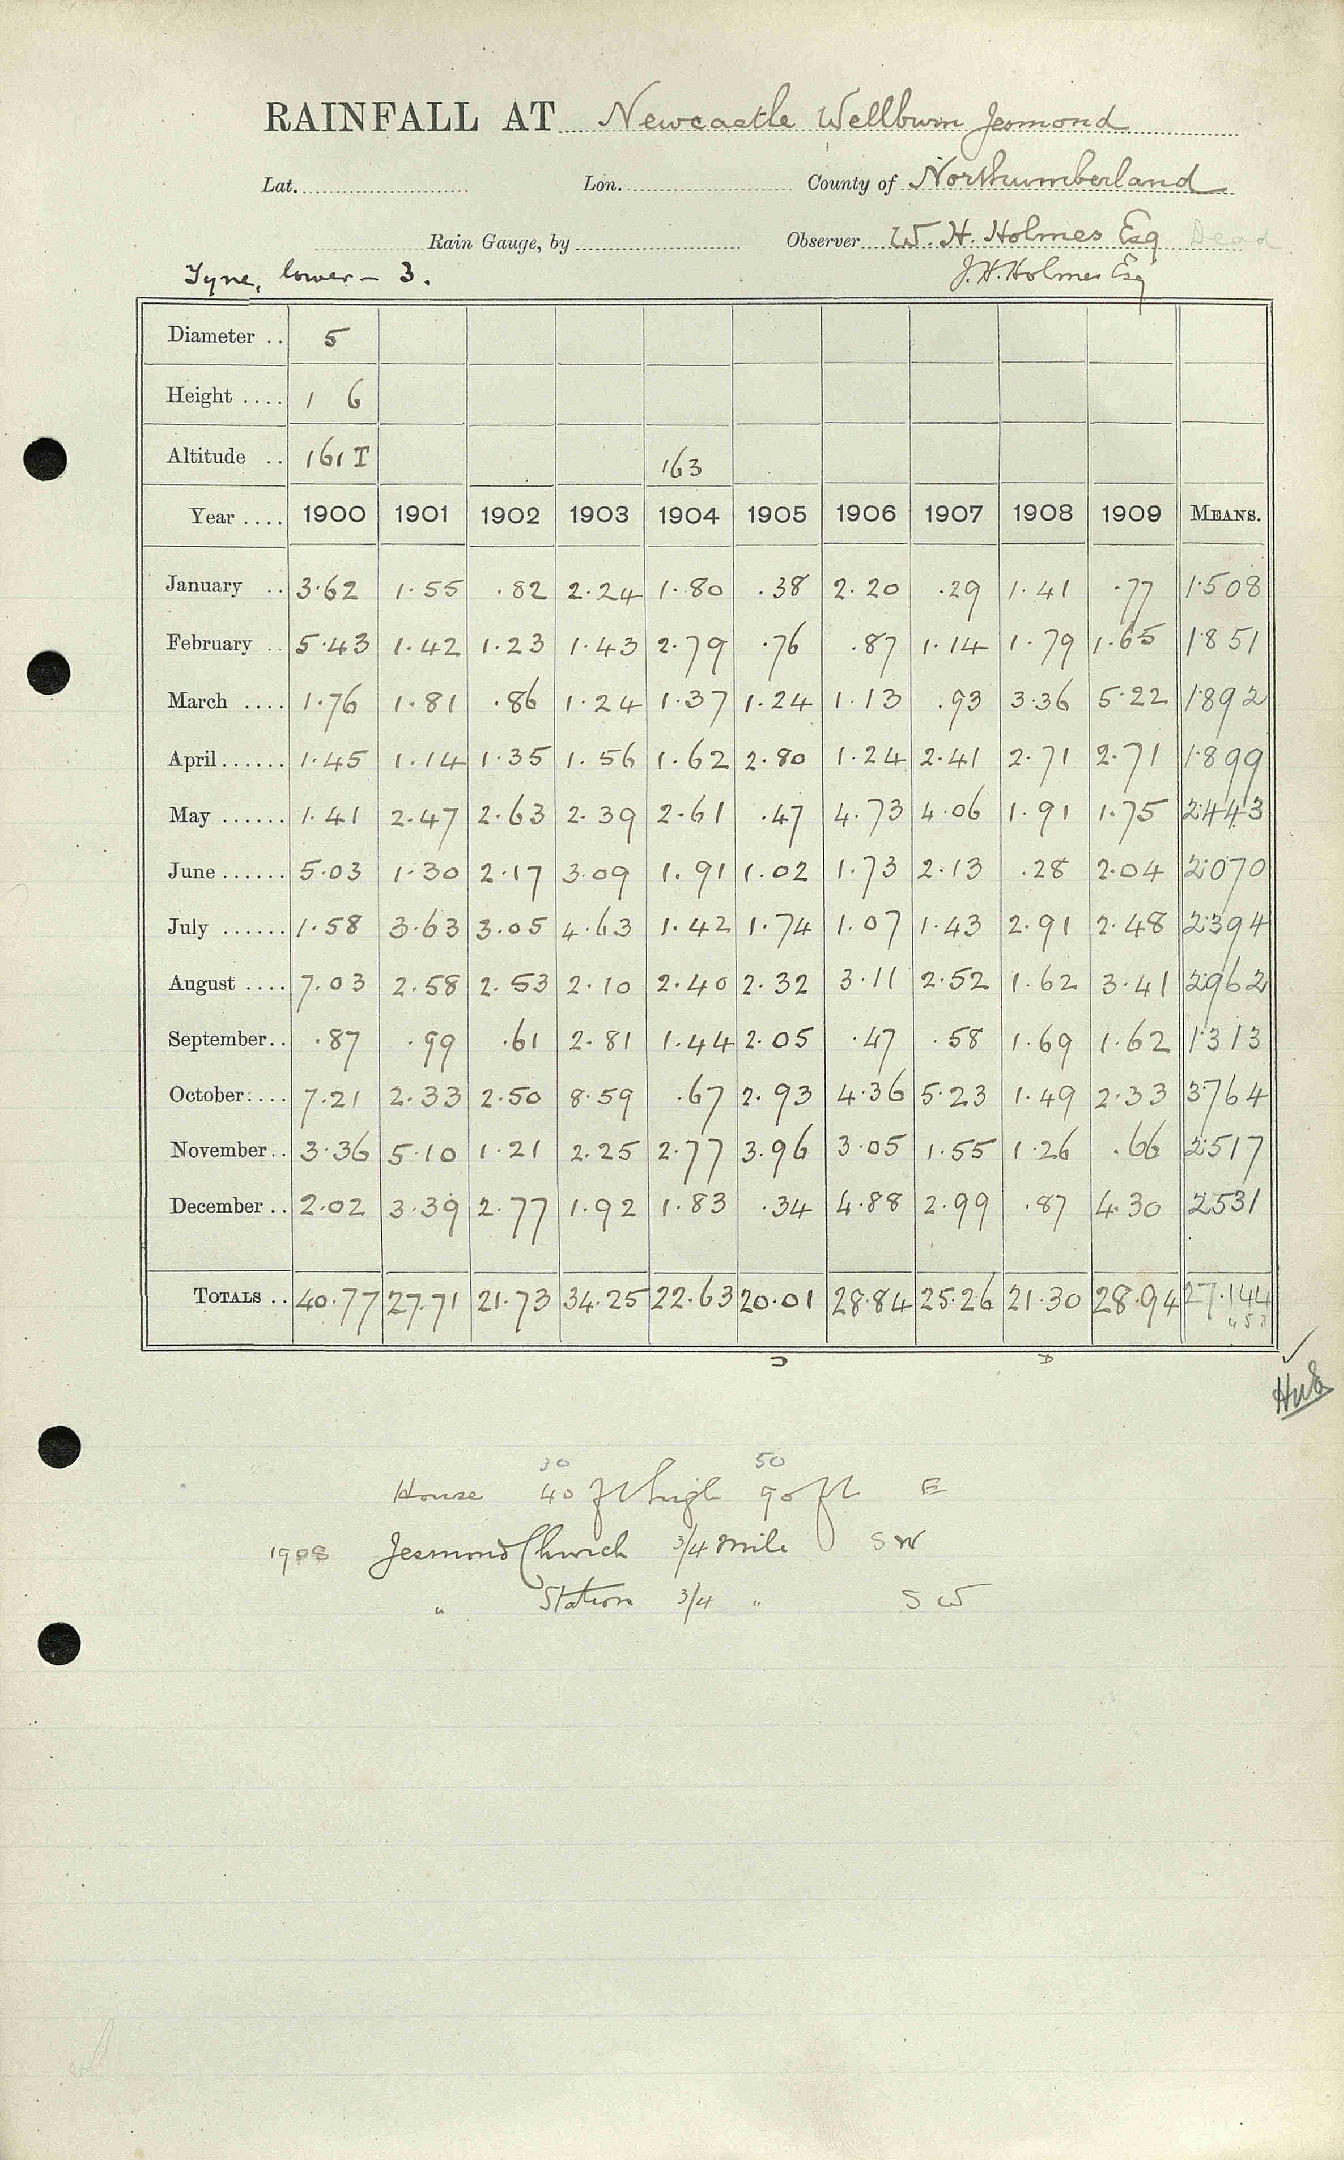 RAINFALL AT Newcastle Wellburn Jesmond
Lat. Lon. County of Northumberland
Rain Gauge, by Observer W. H. Holmes Esq Dead
Tyne, lower - 3. J. H. Holmes Esq
Diameter .. 5
Height .... 1 6
Altitude .. 161 T 163
Year .... 1900 1901 1902 1903 1904 1905 1906 1907 1908 1909 MEANS.
January .. 3.62 1.55 .82 2.24 1.80 .38 2.20 .29 1.41 .77 1.508
February .. 5.43 1.42 1.23 1.43 2.79 .76 .87 1.14 1.79 1.65 1.851
March .... 1.76 1.81 .86 1.24 1.37 1.24 1.13 .93 3.36 5.22 1.892
April...... 1.45 1.14 1.35 1.56 1.62 2.80 1.24 2.41 2.71 2.71 1.899
May ...... 1.41 2.47 2.63 2.39 2.61 .47 4.73 4.06 1.91 1.75 2.443
June ...... 5.03 1.30 2.17 3.09 1.91 1.02 1.73 2.13 .28 2.04 2.070
July ...... 1.58 3.63 3.05 4.63 1.42 1.74 1.07 1.43 2.91 2.48 2.394
August .... 7.03 2.58 2.53 2.10 2.40 2.32 3.11 2.52 1.62 3.41 2.962
September.. .87 .99 .61 2.81 1.44 2.05 .47 .58 1.69 1.62 1.313
October.... 7.21 2.33 2.50 8.59 .67 2.93 4.36 5.23 1.49 2.33 3.764
November.. 3.36 5.10 1.21 2.25 2.77 3.96 3.05 1.55 1.26 .66 2.517
December .. 2.02 3.39 2.77 1.92 1.83 .34 4.88 2.99 .87 4.30 2.531
TOTALS .. 40.77 27.71 21.73 34.25 22.63 20.01 28.84 25.26 21.30 28.94 27.144
30 50
House 40 ft high 90 ft E
1908 Jesmond Church 3/4 mile SW
" Station 3/4 " SW